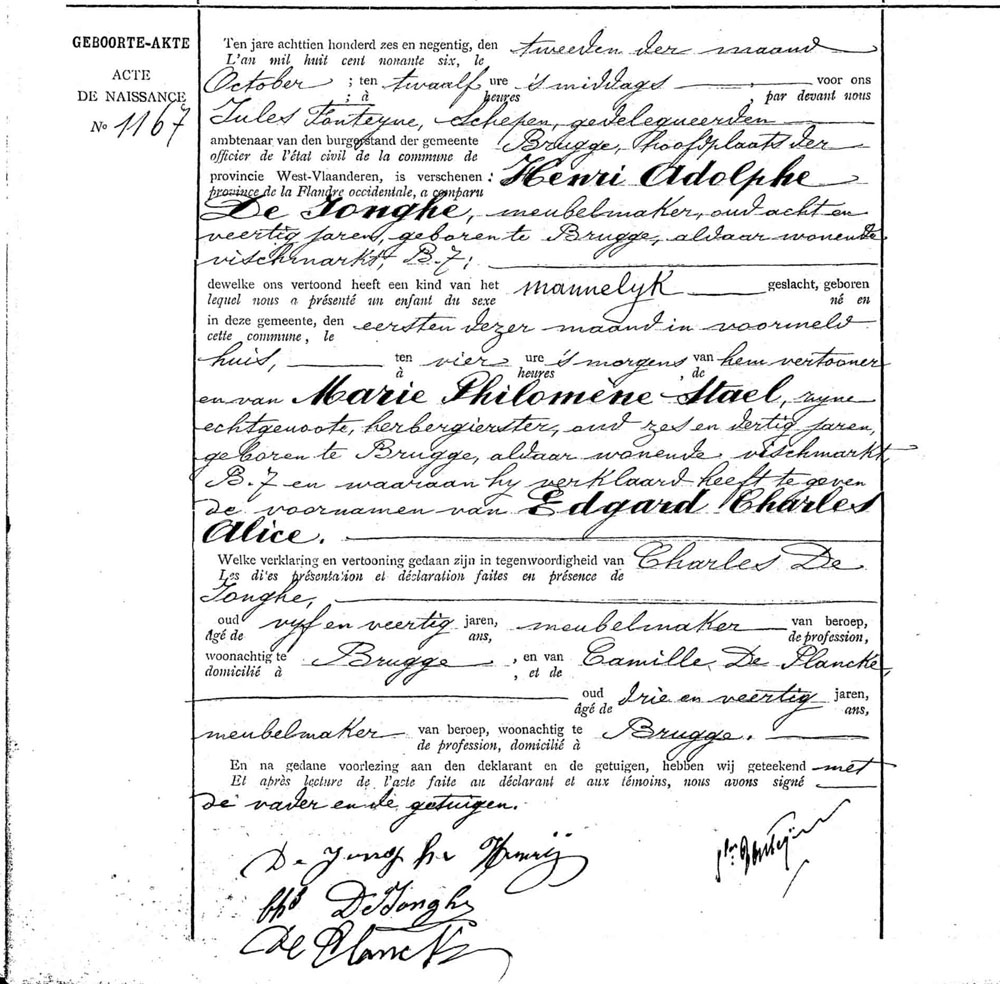 GEBOORTE-AKTE
ACTE
DE NAISSANCE
No 1167
Ten jare achttien honderd zes en negentig, den tweeden der maand
L'an mil huit cent nonante six, le
October ; ten twaalf ure 's middags voor ons
; à heures , par devant nous
Jules Fonteyne, Schepen, gedelegueerden
ambtenaar van den burgerstand der gemeente Brugge, hoofdplaats der
officier de l'état civil de la commune de
provincie West-Vlaanderen, is verschenen : Henri Adolphe
province de la Flandre occidentale, a comparu
De Jonghe, meubelmaker, oud acht en
veertig jaren, geboren te Brugge, aldaar wonende
vischmarkt, B.7;
dewelke ons vertoond heeft een kind van het mannelyk geslacht, geboren
lequel nous a présenté un enfant du sexe né en
in deze gemeente, den eersten dezer maand in voormeld
cette commune, le
huis, ten vier ure 's morgens van hem vertooner
à heures , de
en van Marie Philomène Stael, zyne
echtgenoote, herbergierster, oud zes en dertig jaren,
geboren te Brugge, aldaar wonende vischmarkt,
B.7 en waaraan hy verklaard heeft te geven
de voornamen van Edgard Charles
Alice.
Welke verklaring en vertooning gedaan zijn in tegenwoordigheid van Charles De
Les dites présentation et déclaration faites en présence de
Jonghe,
oud vyf en veertig jaren, meubelmaker van beroep,
âgé de ans, de profession,
woonachtig te Brugge , en van Camille De Plancke,
domicilié à , et de
oud drie en veertig jaren,
âgé de ans,
meubelmaker van beroep, woonachtig te Brugge.
de profession, domicilié à
En na gedane voorlezing aan den deklarant en de getuigen, hebben wij geteekend met
Et après lecture de l'acte faite au déclarant et aux témoins, nous avons signé
de vader en de getuigen.
De Jonghe Henrij
Chs DeJonghe
De Plancke